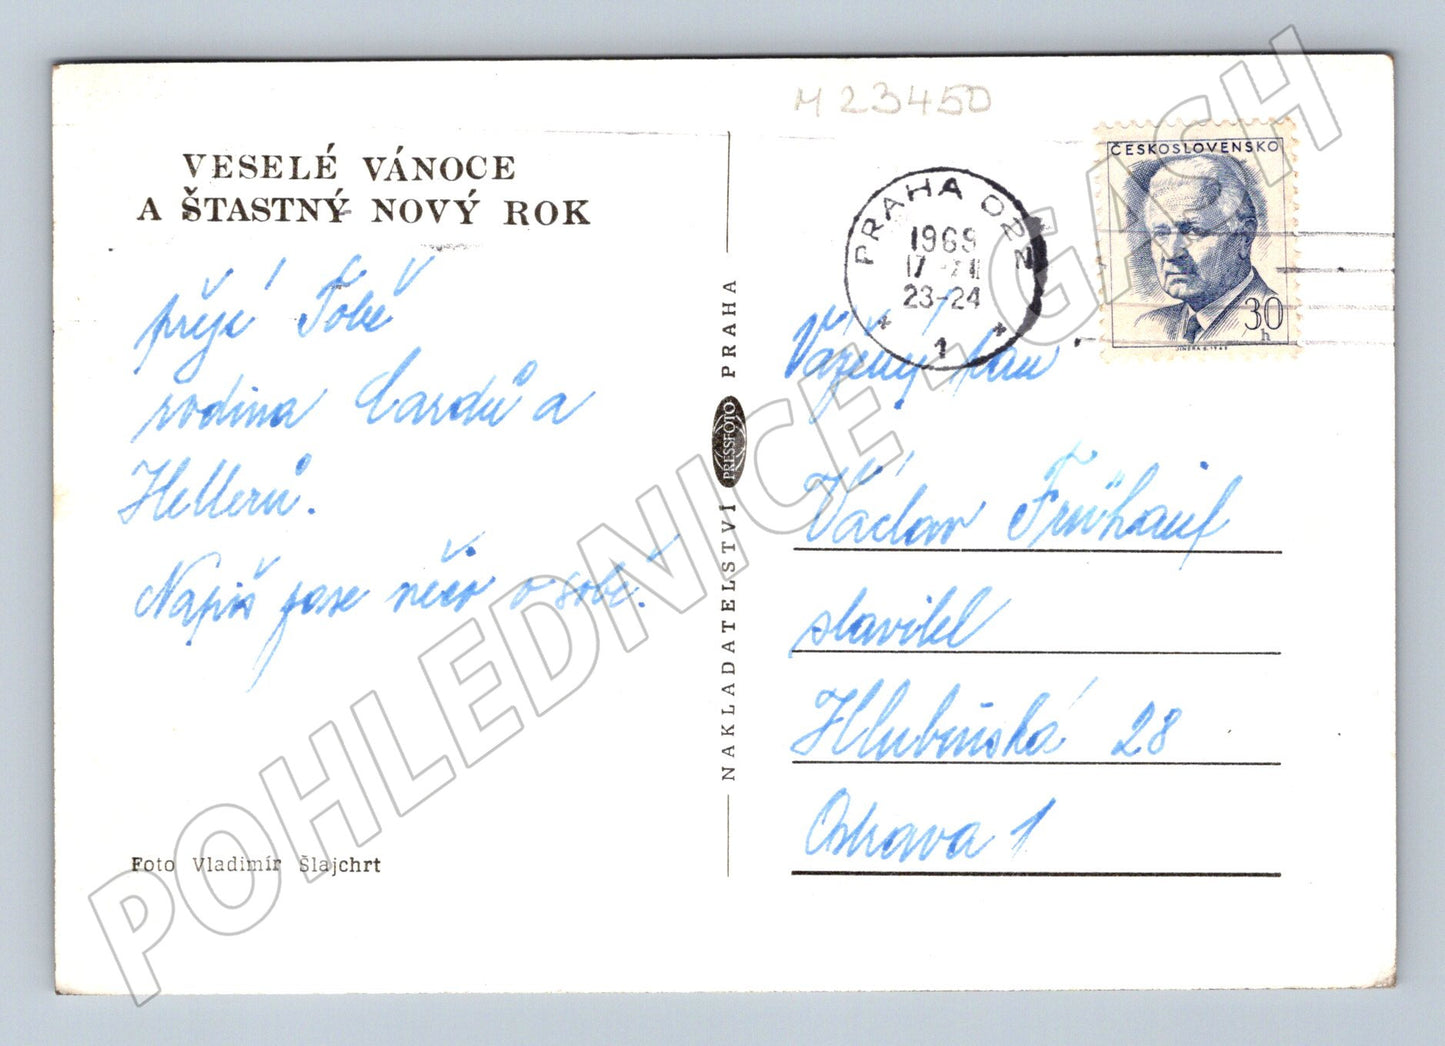 M 23450
VESELÉ VÁNOCE
A ŠTASTNÝ NOVÝ ROK
přejí Tobě
rodina Cardů a
Hellerů.
Napiš zase něco o sobě!
Foto Vladimír Šlajchrt
NAKLADATELSTVÍ PRESSFOTO PRAHA
PRAHA 022
1969
17.XII
23-24
* 1 *
ČESKOSLOVENSKO
30
h
Vážený pan
Václav Frühauf
stavitel
Hlubinská 28
Ostrava 1
POHLEDNICE - GASH